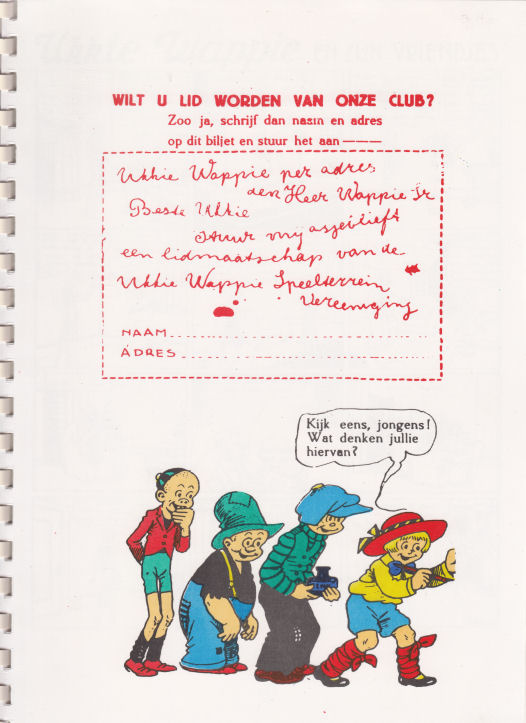 WILT U LID WORDEN VAN ONZE CLUB?
Zoo ja, schrijf dan naam en adres
op dit biljet en stuur het aan ———
Ukkie Wappie per adres
den Heer Wappie Jr
Beste Ukkie
stuur my asjeblieft
een lidmaatschap van de
Ukkie Wappie Speelterrein
Vereeniging
NAAM
ADRES
Kijk eens, jongens!
Wat denken jullie
hiervan?